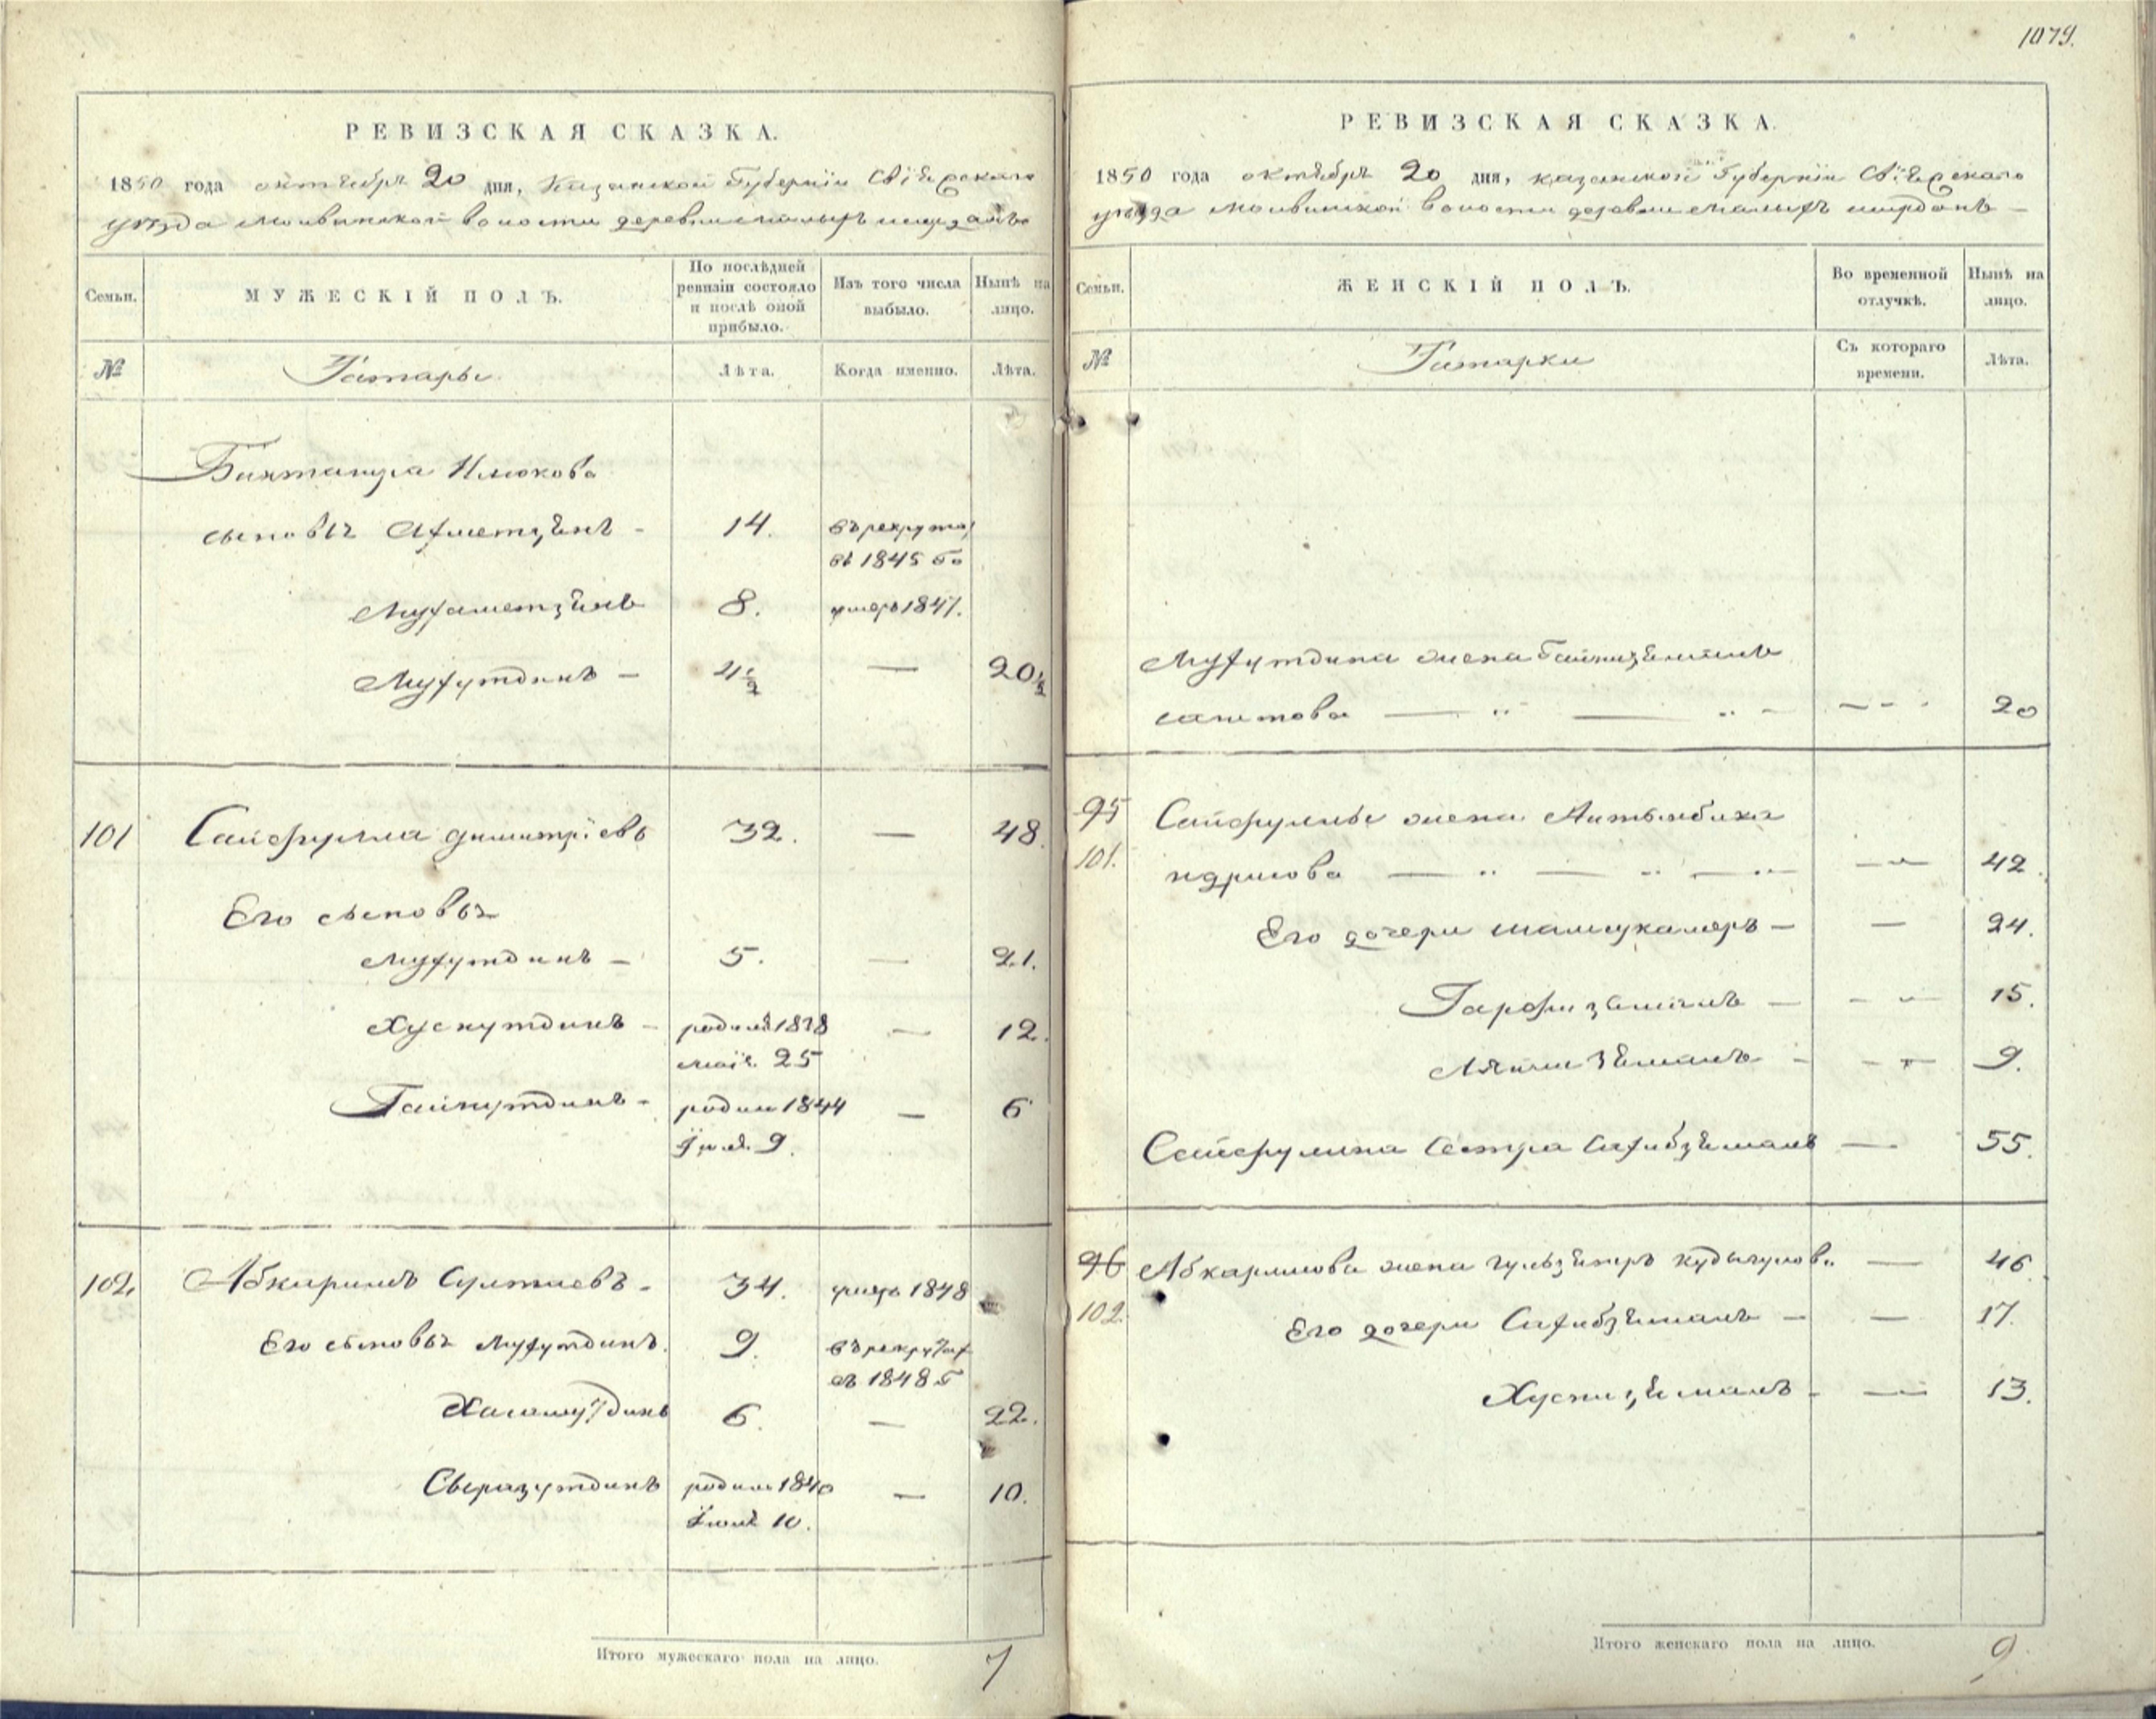 1079.
РЕВИЗСКАЯ СКАЗКА.
1850 года октября 20 дня, Казанской Губернiи Свiяжскаго
уѣзда волости деревни малыхъ
Семьи.
МУЖЕСКIЙ ПОЛЪ.
По послѣдней ревизiи состояло и послѣ оной прибыло.
Изъ того числа выбыло.
Нынѣ на лицо.
№
Татары
Лѣта.
Когда именно.
Лѣта.
Бикташра Илюкова
сыновья Ахметзянъ - 14. въ рекруты
въ 1845 го
Мухаметзянъ 8. умеръ 1847.
Мухутдинъ - 4 1/2 — 20 1/2
101 Сайфулла Димитрiевъ 32. — 48.
Его сыновья
Мухутдинъ - 5. — 21.
Хуснутдинъ - родил 1838 — 12.
маiя 25
Гайнутдинъ - родил 1844 — 6
9.
102. Абкаримъ - 34. умеръ 1848
Его сыновья Мухутдинъ. 9. въ рекруты
въ 1848 г
Хисамутдинъ 6. — 22.
Сыразутдинъ родил 1840 — 10.
10.
Итого мужескаго пола на лицо. 7
РЕВИЗСКАЯ СКАЗКА.
1850 года октября 20 дня, казанской Губернiи Свiяжскаго
уѣзда волости деревни малыхъ
Семьи.
ЖЕНСКIЙ ПОЛЪ.
Во временной отлучкѣ.
Нынѣ на лицо.
№
Татарки
Съ котораго времени.
Лѣта.
Мухутдина жена
сагитова — 20
95 Сайфуллы жена Алтынбика
101. идрисова — 42.
Его дочери шамсукамеръ - — 24.
Гарфизяманъ — 15.
— 9.
Сайфуллина сестра Сахибзяманъ — 55.
96 Абкаримова жена — 46.
102. Его дочери Сахибзяманъ — 17.
Хуснизяманъ - — 13.
Итого женскаго пола на лицо. 9